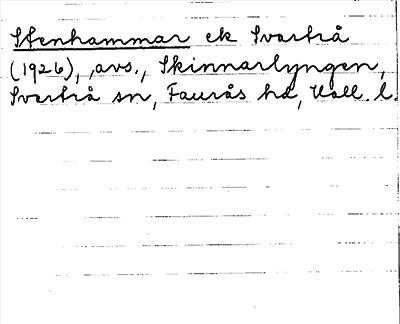 Stenhammar ek Svartrå
(1926), avs., Skinnarlyngen,
Svartrå sn, Faurås hd, Hall. l.